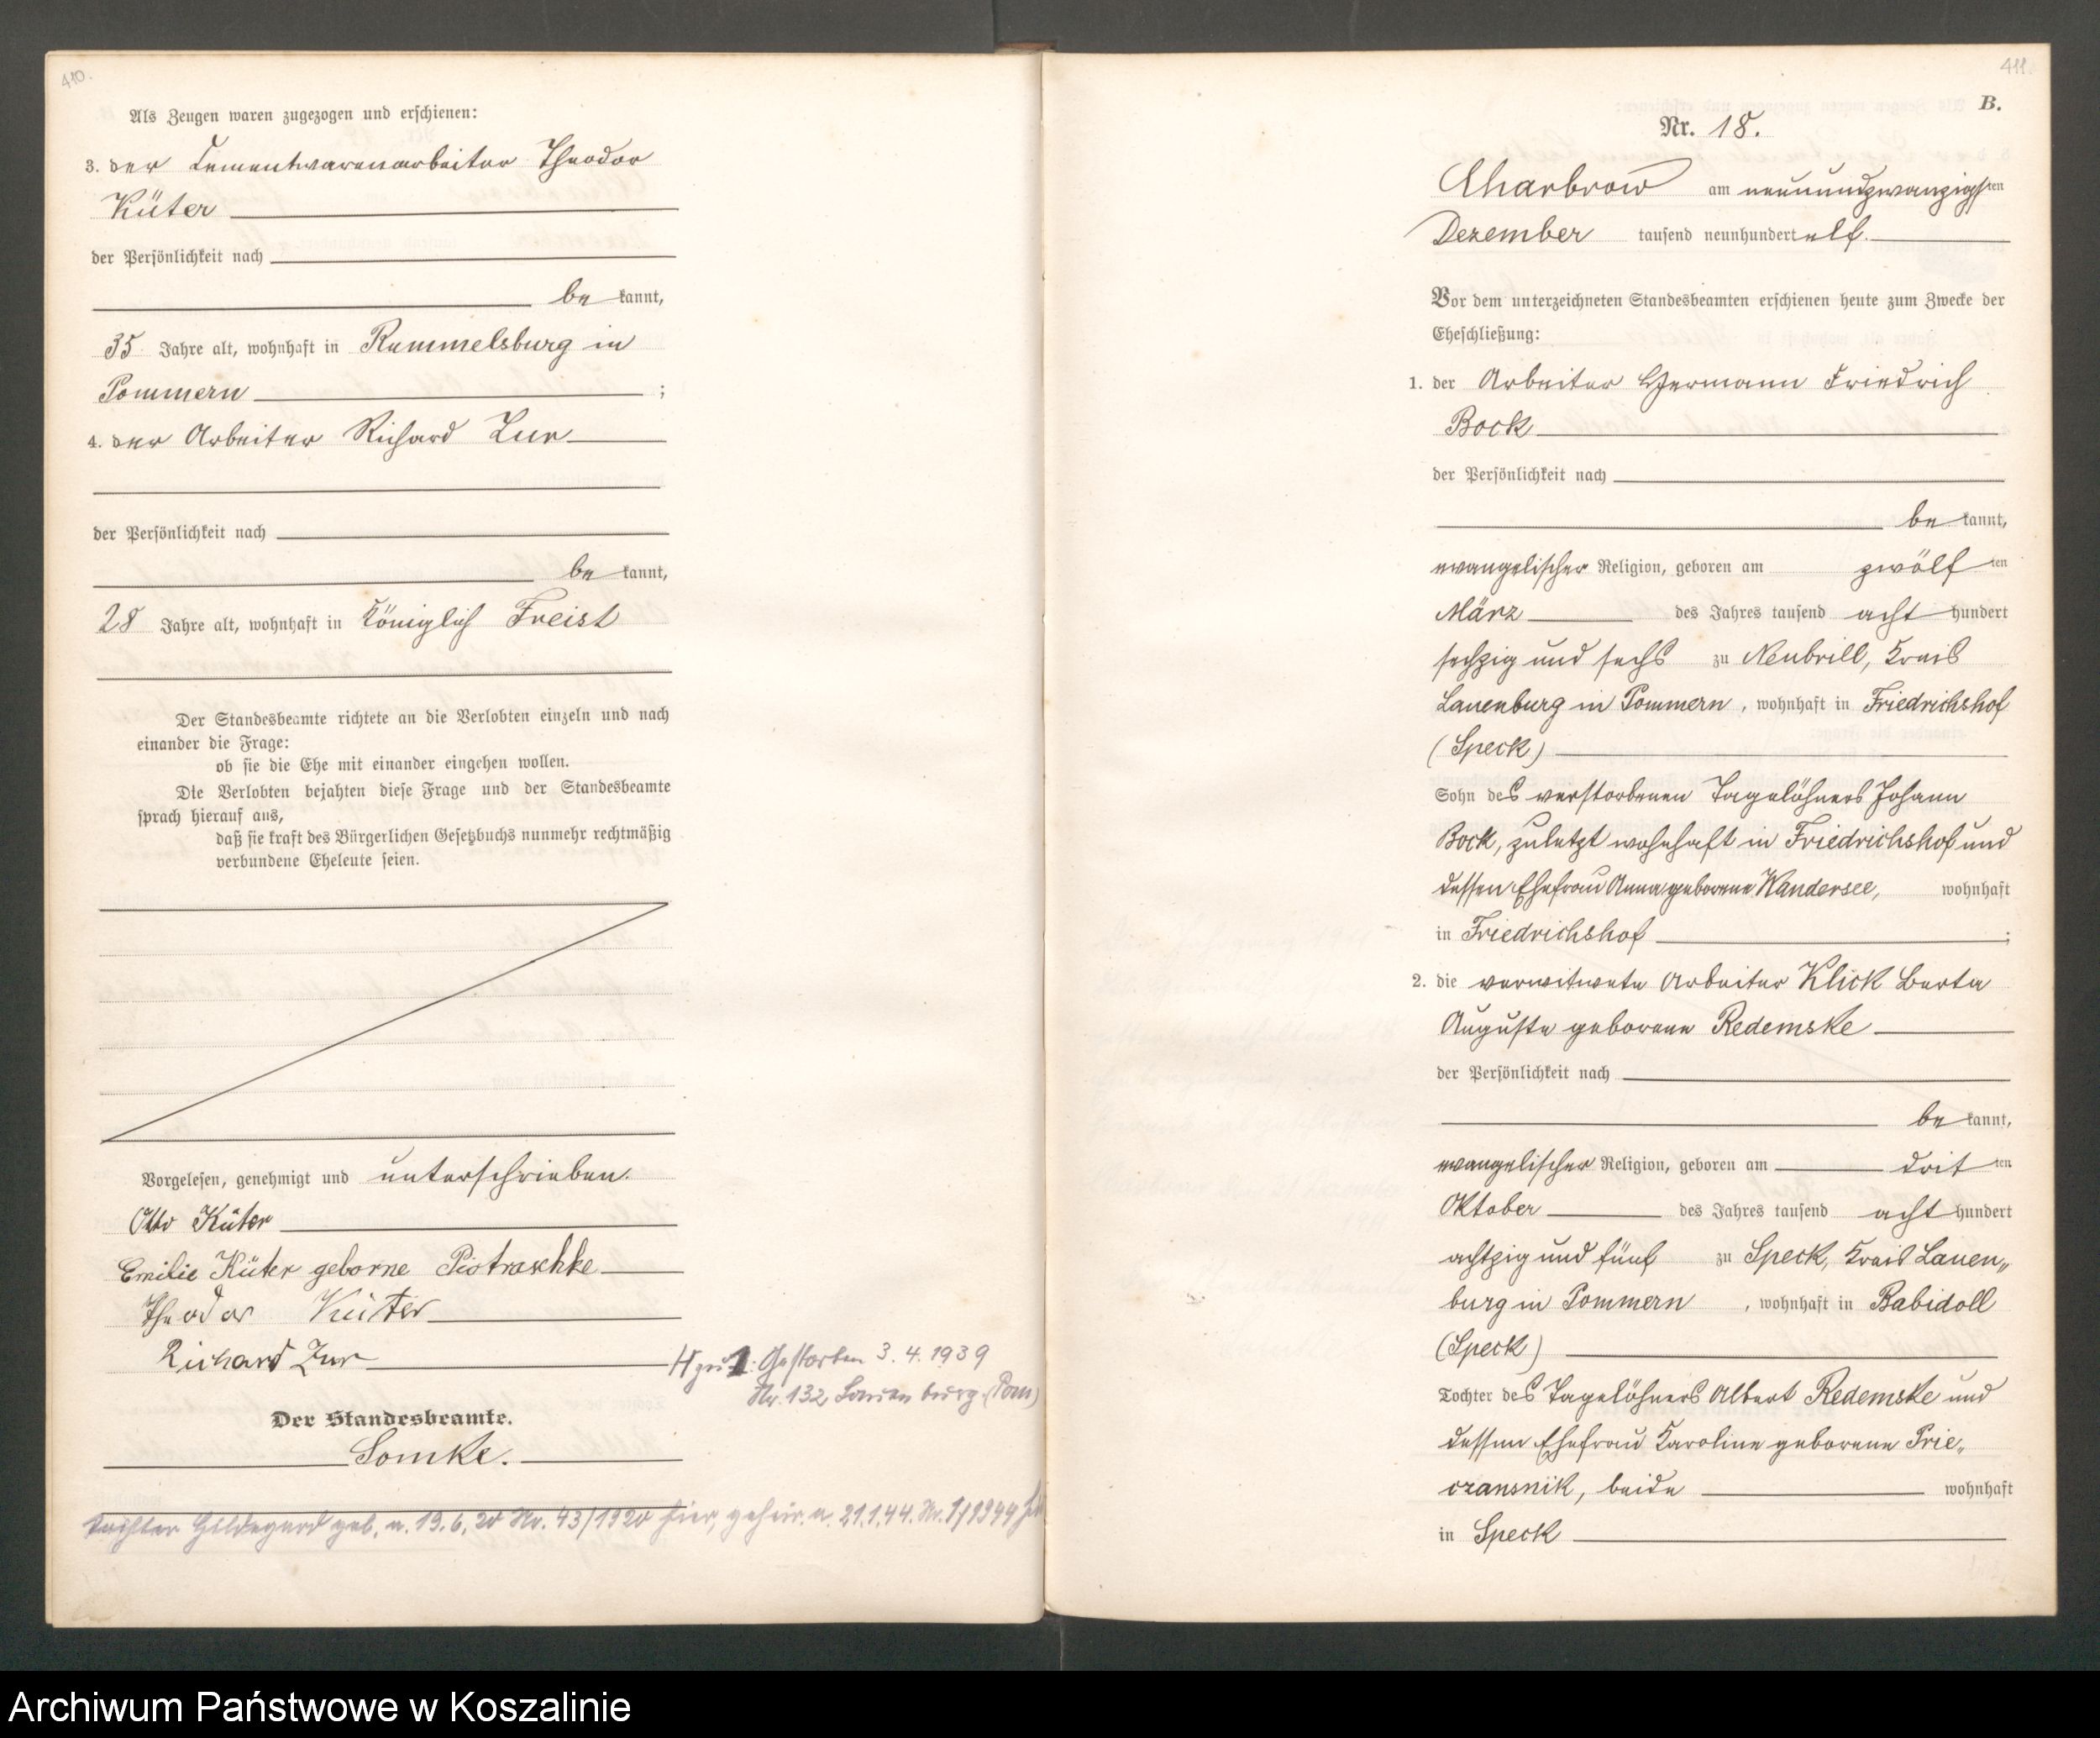 410.
Als Zeugen waren zugezogen und erschienen:
3. der Cementwarenarbeiter Theodor
Küter
der Persönlichkeit nach
be kannt,
35 Jahre alt, wohnhaft in Rummelsburg in
Pommern ;
4. der Arbeiter Richard Zur
der Persönlichkeit nach
be kannt,
28 Jahre alt, wohnhaft in Königlich Freist
Der Standesbeamte richtete an die Verlobten einzeln und nach
einander die Frage:
ob sie die Ehe mit einander eingehen wollen.
Die Verlobten bejahten diese Frage und der Standesbeamte
sprach hierauf aus,
daß sie kraft des Bürgerlichen Gesetzbuchs nunmehr rechtmäßig
verbundene Eheleute seien.
Vorgelesen, genehmigt und unterschrieben.
Otto Küter
Emilie Küter geborne Piotraschke
Theodor Küter
Richard Zur
H zu 1: Gestorben 3. 4. 1939
Nr. 132 Lauenburg (Pom)
Der Standesbeamte.
Somke.
Tochter Hildegard geb. a. 19. 6. 20 Nr. 43/1920 hier, geheir. a. 21.1.44. Nr. 1/1944
411.
B.
Nr. 18.
Charbrow am neunundzwanzigsten
Dezember tausend neunhundert elf.
Vor dem unterzeichneten Standesbeamten erschienen heute zum Zwecke der
Eheschließung:
1. der Arbeiter Hermann Friedrich
Bock
der Persönlichkeit nach
be kannt,
evangelischer Religion, geboren am zwölf ten
März des Jahres tausend acht hundert
sechzig und sechs zu Neubrill, Kreis
Lauenburg in Pommern, wohnhaft in Friedrichshof
(Speck)
Sohn des verstorbenen Tagelöhners Johann
Bock, zuletzt wohnhaft in Friedrichshof und
dessen Ehefrau Anna geborene Wandersee, wohnhaft
in Friedrichshof ;
2. die verwitwete Arbeiter Klick Berta
Auguste geborene Redemske
der Persönlichkeit nach
be kannt,
evangelischer Religion, geboren am drit ten
Oktober des Jahres tausend acht hundert
achtzig und fünf zu Speck, Kreis Lauen„
burg in Pommern , wohnhaft in Babidoll
(Speck)
Tochter des Tagelöhners Albert Redemske und
dessen Ehefrau Karoline geborene Prie„
czansnik, beide wohnhaft
in Speck
Archiwum Państwowe w Koszalinie